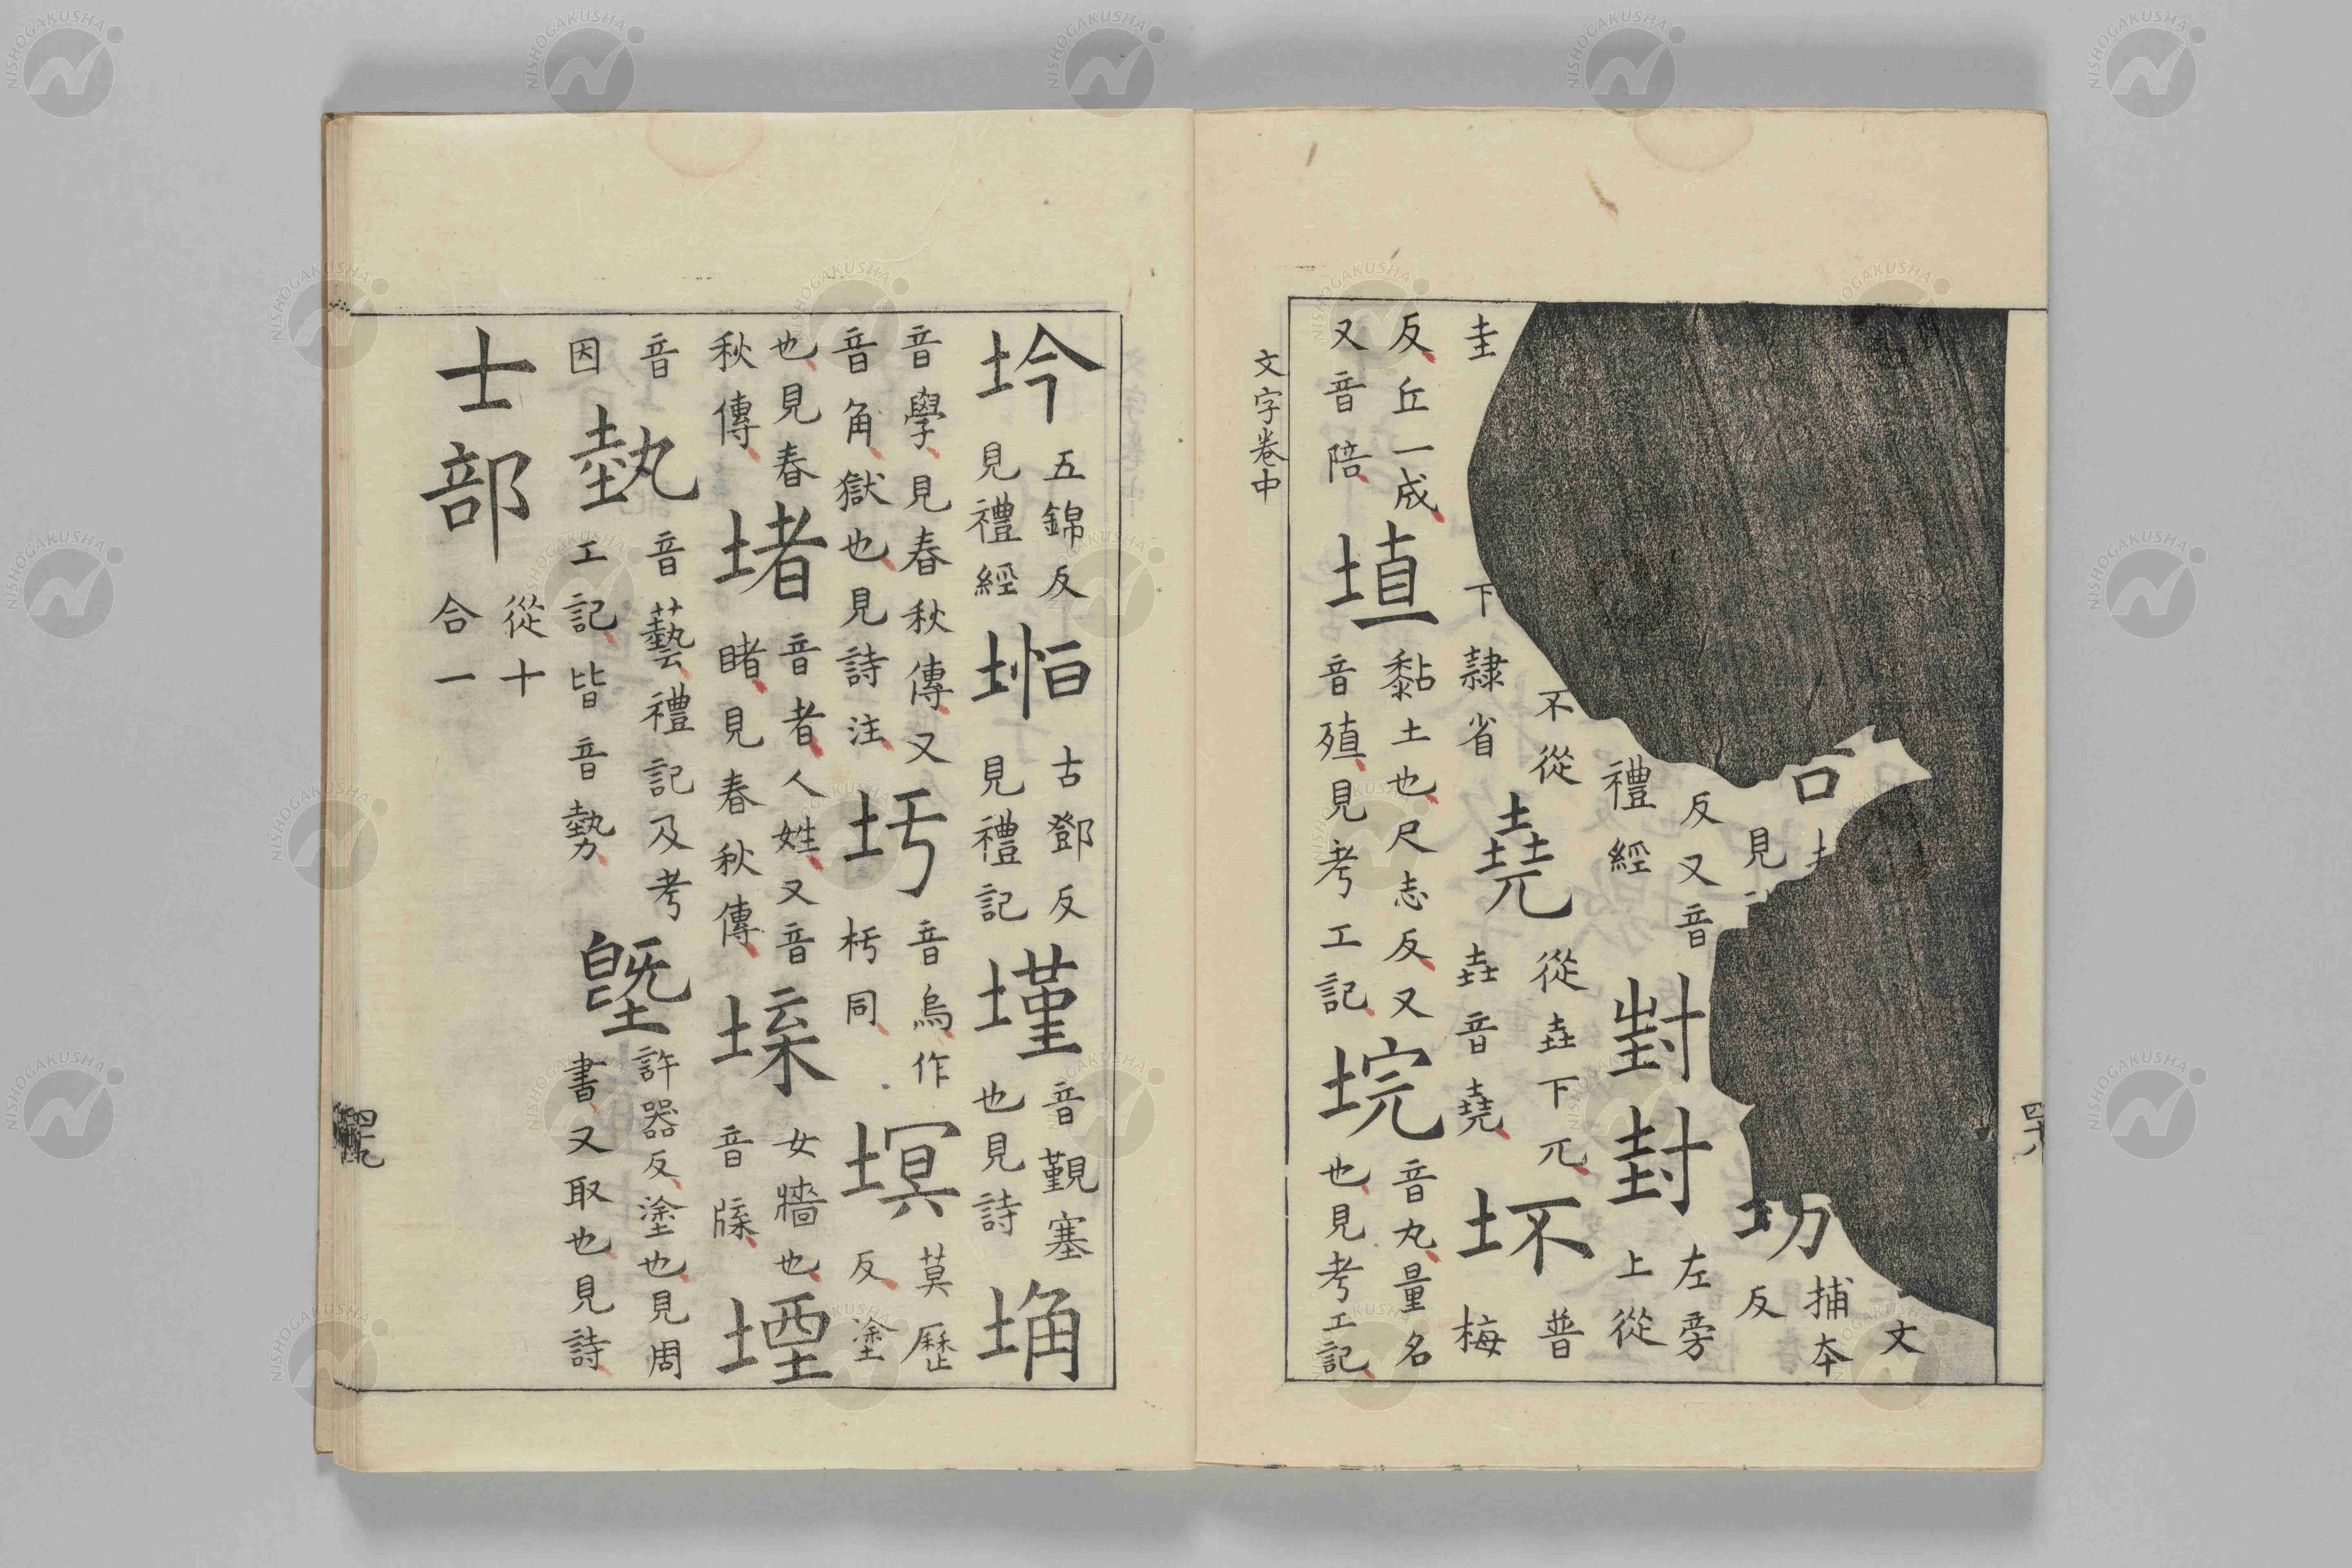 四十八
文
口見坊捕本反
反又音禮經𡊽封左旁上從
不從圭下隸省堯從垚下兀垚音堯坏普梅
反丘一成又音陪埴黏土也尺志反又音殖見考工記垸音丸量名也見考工記
文字卷中
坅五錦反見禮經堩古鄧反見禮記墐音覲塞也見詩埆
音學見春秋傳又音角獄也見詩注圬音烏作杇同塓莫歷反塗
也見春秋傳堵音者人姓又音睹見春秋傳堞女牆也音牒堙
音因埶音藝禮記及考工記皆音勢塈許器反塗也見周書又取也見詩
士部從十合一
四十九